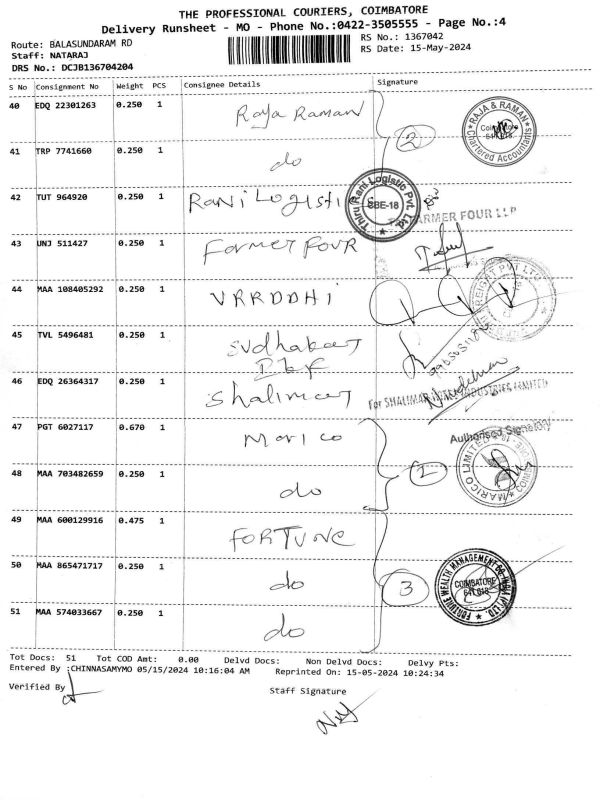 THE PROFESSIONAL COURIERS, COIMBATORE
Delivery Runsheet - MO - Phone No.:0422-3505555 - Page No.:4
Route: BALASUNDARAM RD
Staff: NATARAJ
DRS No.: DCJB136704204
RS No.: 1367042
RS Date: 15-May-2024
S No Consignment No Weight PCS Consignee Details Signature
40 EDQ 22301263 0.250 1 Raja Raman
RAJA & RAMAN Coimbatore 641 018. Chartered Accountants
2
41 TRP 7741660 0.250 1 do
42 TUT 964920 0.250 1 Rani Logisti
Thiru Rani Logistic Pvt. Ltd. CBE-18
FARMER FOUR LLP
43 UNJ 511427 0.250 1 Former FOUR
44 MAA 108405292 0.250 1 VRRDDHI
PVT LTD
45 TVL 5496481 0.250 1 Sudhakar
46 EDQ 26364317 0.250 1 Shalimar
For SHALIMAR INDUSTRIES LIMITED
47 PGT 6027117 0.670 1 Marico
Authorised Signatory
MARICO LIMITED
2
48 MAA 703482659 0.250 1 do
49 MAA 600129916 0.475 1 FORTUNE
50 MAA 865471717 0.250 1 do
3
FORTUNE WEALTH MANAGEMENT CO. INDIA (P) LTD. COIMBATORE 641 018
51 MAA 574033667 0.250 1 do
Tot Docs: 51 Tot COD Amt: 0.00 Delvd Docs: Non Delvd Docs: Delvy Pts:
Entered By :CHINNASAMYMO 05/15/2024 10:16:04 AM Reprinted On: 15-05-2024 10:24:34
Verified By
Staff Signature